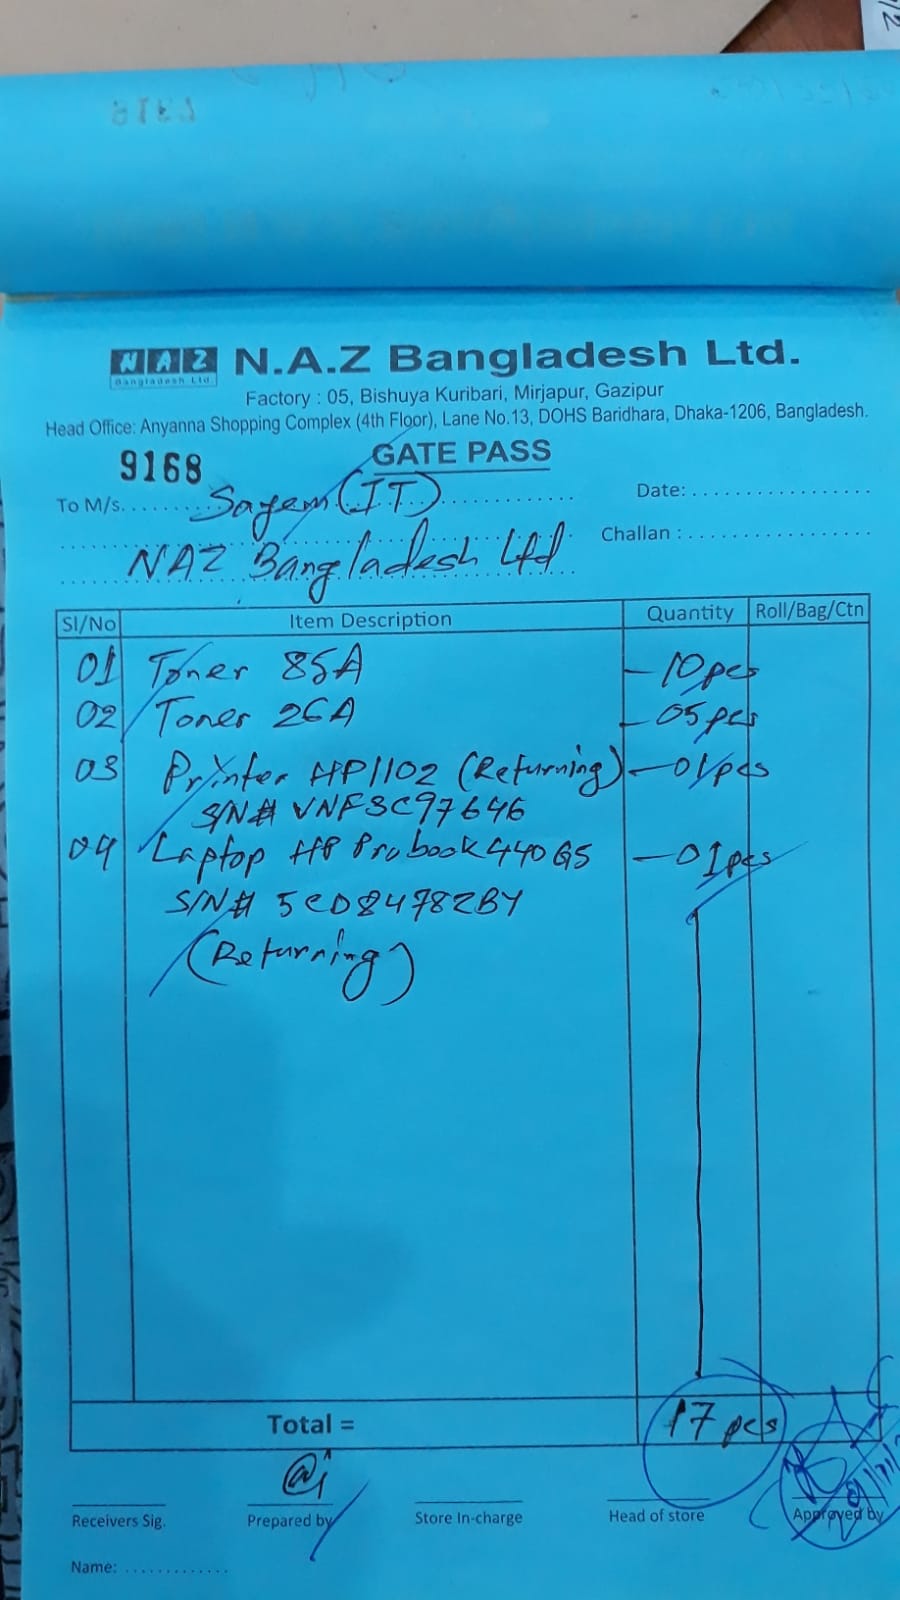 NAZ
Bangladesh Ltd
N.A.Z Bangladesh Ltd.
Factory : 05, Bishuya Kuribari, Mirjapur, Gazipur
Head Office: Anyanna Shopping Complex (4th Floor), Lane No.13, DOHS Baridhara, Dhaka-1206, Bangladesh.
9168 GATE PASS
To M/s. Sayem (IT) Date:
NAZ Bangladesh Ltd Challan :
Sl/No Item Description Quantity Roll/Bag/Ctn
01 Toner 85A - 10 pcs
02 Toner 26A - 05 pcs
03 Printer HP1102 (Returning) - 01 pcs
S/N# VNF3C97646
04 Laptop HP Probook 440 G5 - 01 pcs
S/N# 5CD84782BY
(Returning)
Total = 17 pcs
Receivers Sig. Prepared by Store In-charge Head of store Approved by
Name: